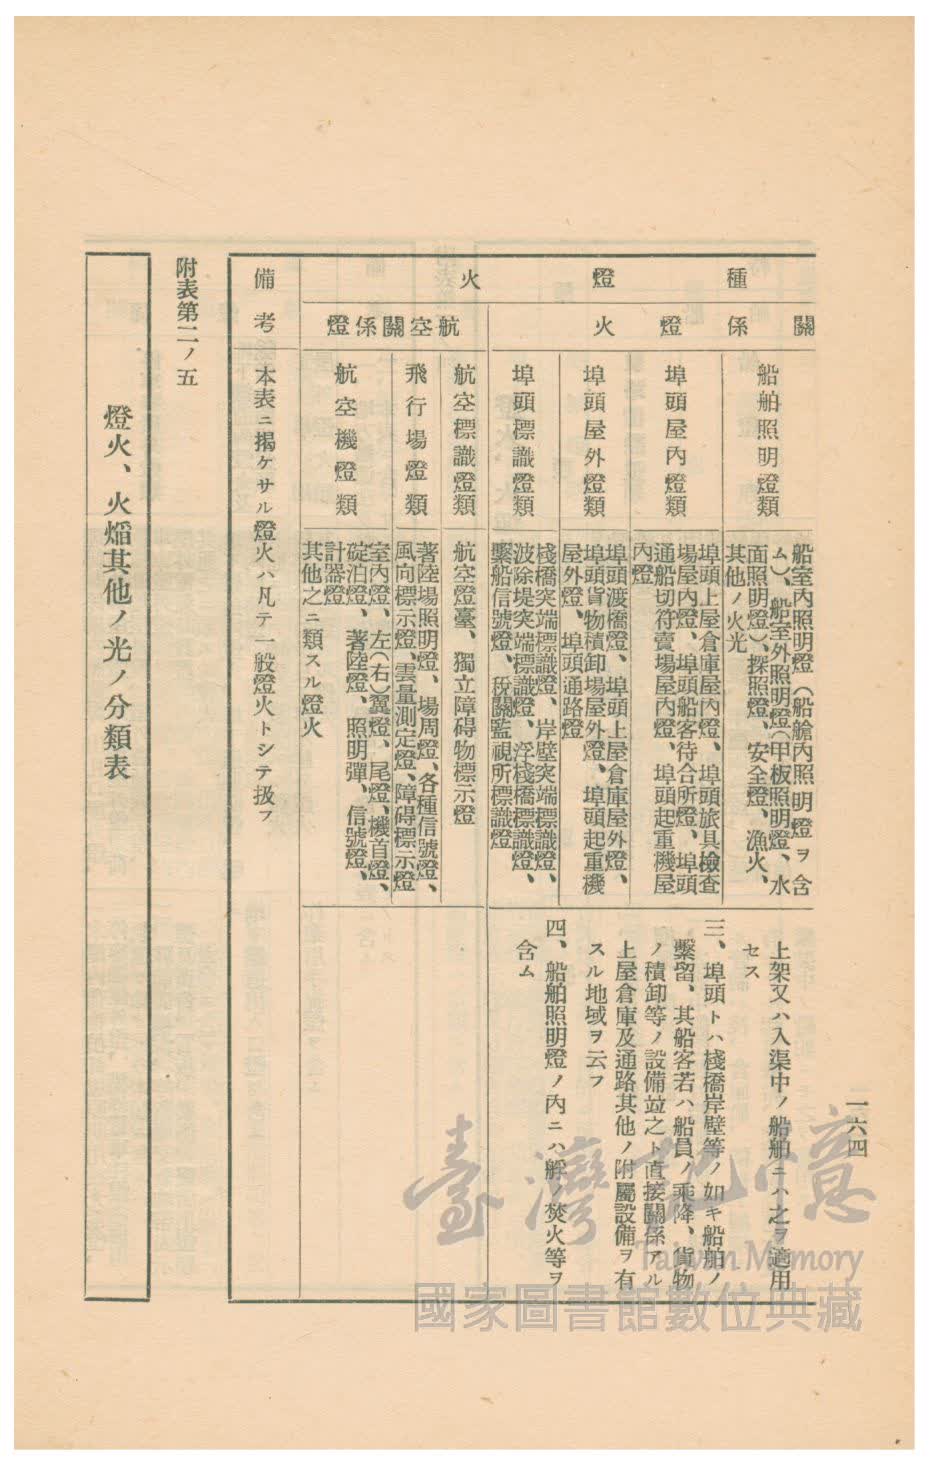 一六四
種燈火
關係燈火
船舶照明燈類
船室內照明燈（船艙內照明燈ヲ含
ム）、船室外照明燈（甲板照明燈、水
面照明燈）、探照燈、安全燈、漁火、
其他ノ火光
埠頭屋內燈類
埠頭上屋倉庫屋內燈、埠頭旅具檢查
場屋內燈、埠頭船客待合所燈、埠頭
通船切符賣場屋內燈、埠頭起重機屋
內燈
埠頭屋外燈類
埠頭渡橋燈、埠頭上屋倉庫屋外燈、
埠頭貨物積卸場屋外燈、埠頭起重機
屋外燈、埠頭通路燈
埠頭標識燈類
棧橋突端標識燈、岸壁突端標識燈、
波除堤突端標識燈、浮棧橋標識燈、
繫船信號燈、稅關監視所標識燈
上架又ハ入渠中ノ船舶ニハ之ヲ適用
セス
三、埠頭トハ棧橋岸壁等ノ如キ船舶ノ
繫留、其船客若ハ船員ノ乘降、貨物
ノ積卸等ノ設備竝之ト直接關係アル
上屋倉庫及通路其他ノ附屬設備ヲ有
スル地域ヲ云フ
四、船舶照明燈ノ內ニハ艀ノ焚火等ヲ
含ム
航空關係燈
航空標識燈類
航空燈臺、獨立障碍物標示燈
飛行場燈類
著陸場照明燈、場周燈、各種信號燈、
風向標示燈、雲量測定燈、障碍標示燈
航空機燈類
室內燈、左（右）翼燈、尾燈、機首燈、
碇泊燈、著陸燈、照明彈、信號燈、
計器燈
其他之ニ類スル燈火
備考
本表ニ揭ケサル燈火ハ凡テ一般燈火トシテ扱フ
附表第二ノ五
燈火、火焰其他ノ光ノ分類表
臺灣記憶
Taiwan Memory
國家圖書館數位典藏